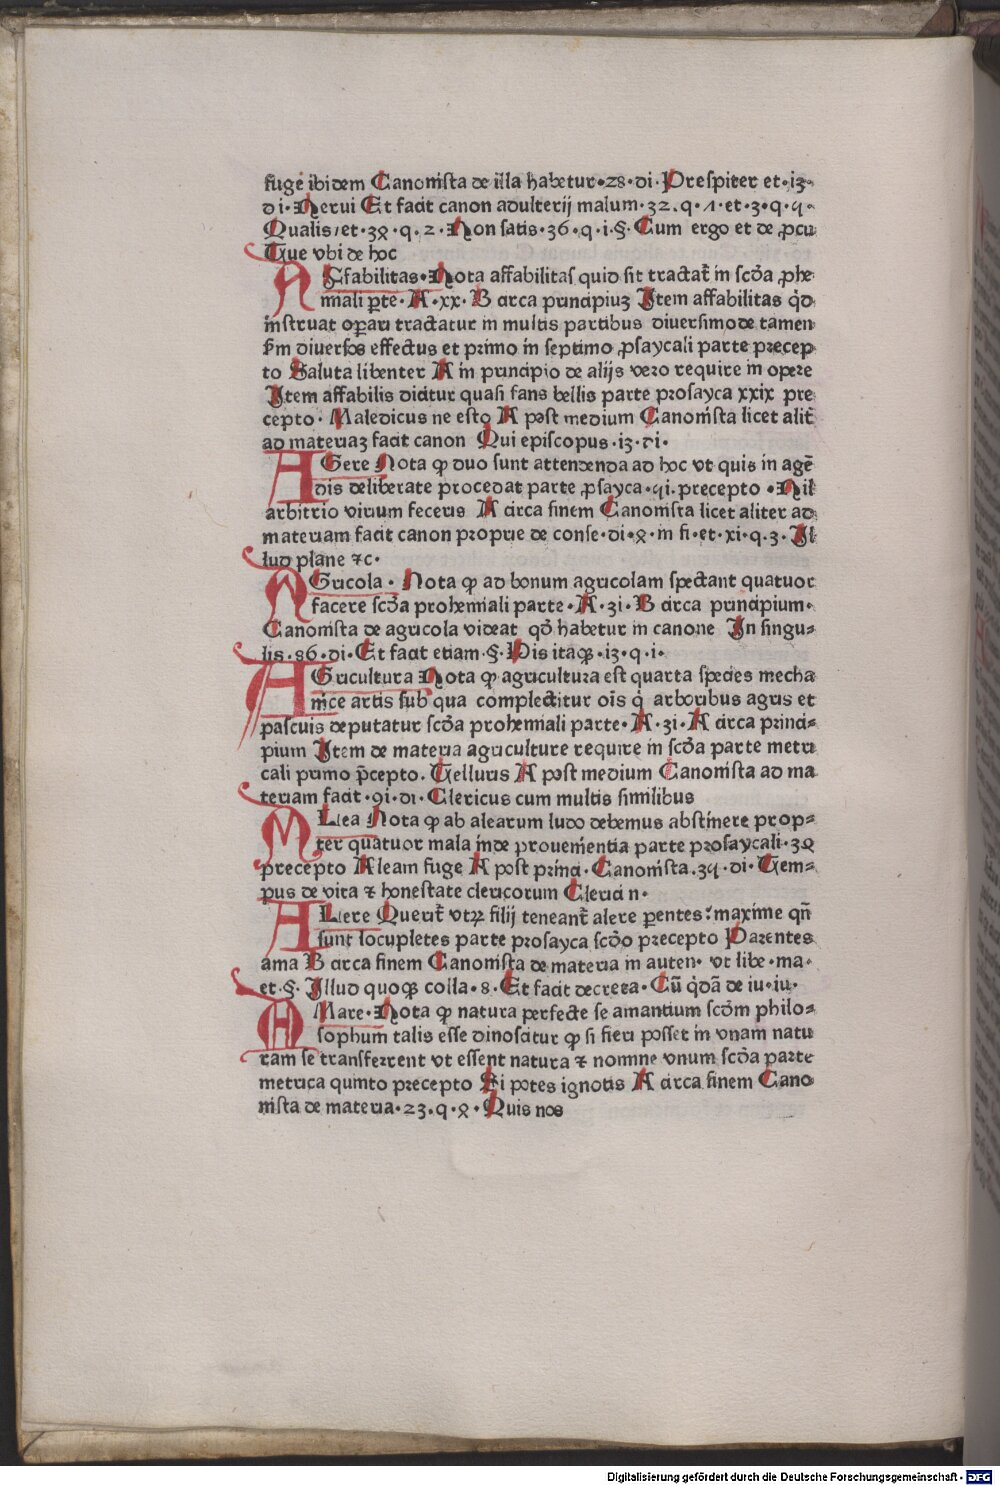 fuge ibidem Canonista de illa habetur·28·di·Prespiter et·iz·
di·Nerui Et facit canon adulterij malum·32·q·1·et·3·q·q·
Qualis/et·38·q·2·Non satis·36·q·i·§·Cum ergo et de ꝓcu
Que vbi de hoc
AFfabilitas·Nota affabilitas quid sit tractat̄ in scd̄a ꝓhe
miali ꝑte·A·xx·B circa principiuꝫ Item affabilitas qd̄
instruat oꝑari tractatur in multis partibus diuersimode tamen
scd̄m diuersos effectus et primo in septimo ꝓsaycali parte precep
to Saluta libenter A in principio de alijs vero require in opere
Item affabilis dicitur quasi fans bellis parte prosayca xxix pre
cepto·Maledicus ne esto A post medium Canonista licet alit̄
ad materiaꝫ facit canon Qui episcopus·iz·di·
AGere Nota ꝙ duo sunt attendenda ad hoc vt quis in agē
dis deliberate procedat parte ꝓsayca·qi·precepto·Nil
arbitrio virium feceris A circa finem Canonista licet aliter ad
materiam facit canon proprie de conse·di·8·in fi·et·xi·q·3·Il
lud plane ⁊c·
AGricola·Nota ꝙ ad bonum agricolam spectant quatuor
facere scd̄a prohemiali parte·A·zi·B circa principium·
Canonista de agricola videat qd̄ habetur in canone In singu-
lis·86·di·Et facit etiam·§·His itaqꝫ·iz·q·i·
AGricultura Nota ꝙ agricultura est quarta species mecha
nice artis sub qua complectitur oīs q̇ arboribus agris et
pascuis deputatur scd̄a prohemiali parte·A·zi·A circa princi-
pium Item de materia agriculture require in scd̄a parte metri
cali primo p̄cepto·Telluris A post medium Canonista ad ma
teriam facit·91·di·Clericus cum multis similibus
ALea Nota ꝙ ab alearum ludo debemus abstinere prop-
ter quatuor mala inde prouenientia parte prosaycali·38
precepto Aleam fuge A post princi·Canonista·3q·di·Tem-
pus de vita ⁊ honestate clericorum Clerici n·
ALere Querit̄ vtꝝ filij teneant̄ alere ꝑentes: maxime qn̄
sunt locupletes parte prosayca scd̄o precepto Parentes
ama B circa finem Canonista de materia in auten·vt libe·ma·
et·§·Illud quoqꝫ colla·8·Et facit decreta·Cū q̇dā de iu·iu·
AMare·Nota ꝙ natura perfecte se amantium scd̄m philo-
sophum talis esse dinoscitur ꝙ si fieri posset in vnam natu
ram se transferrent vt essent natura ⁊ nomine vnum scd̄a parte
metrica quinto precepto Si potes ignotis A circa finem Cano
nista de materia·23·q·8·Quis nos
Digitalisierung gefördert durch die Deutsche Forschungsgemeinschaft - DFG